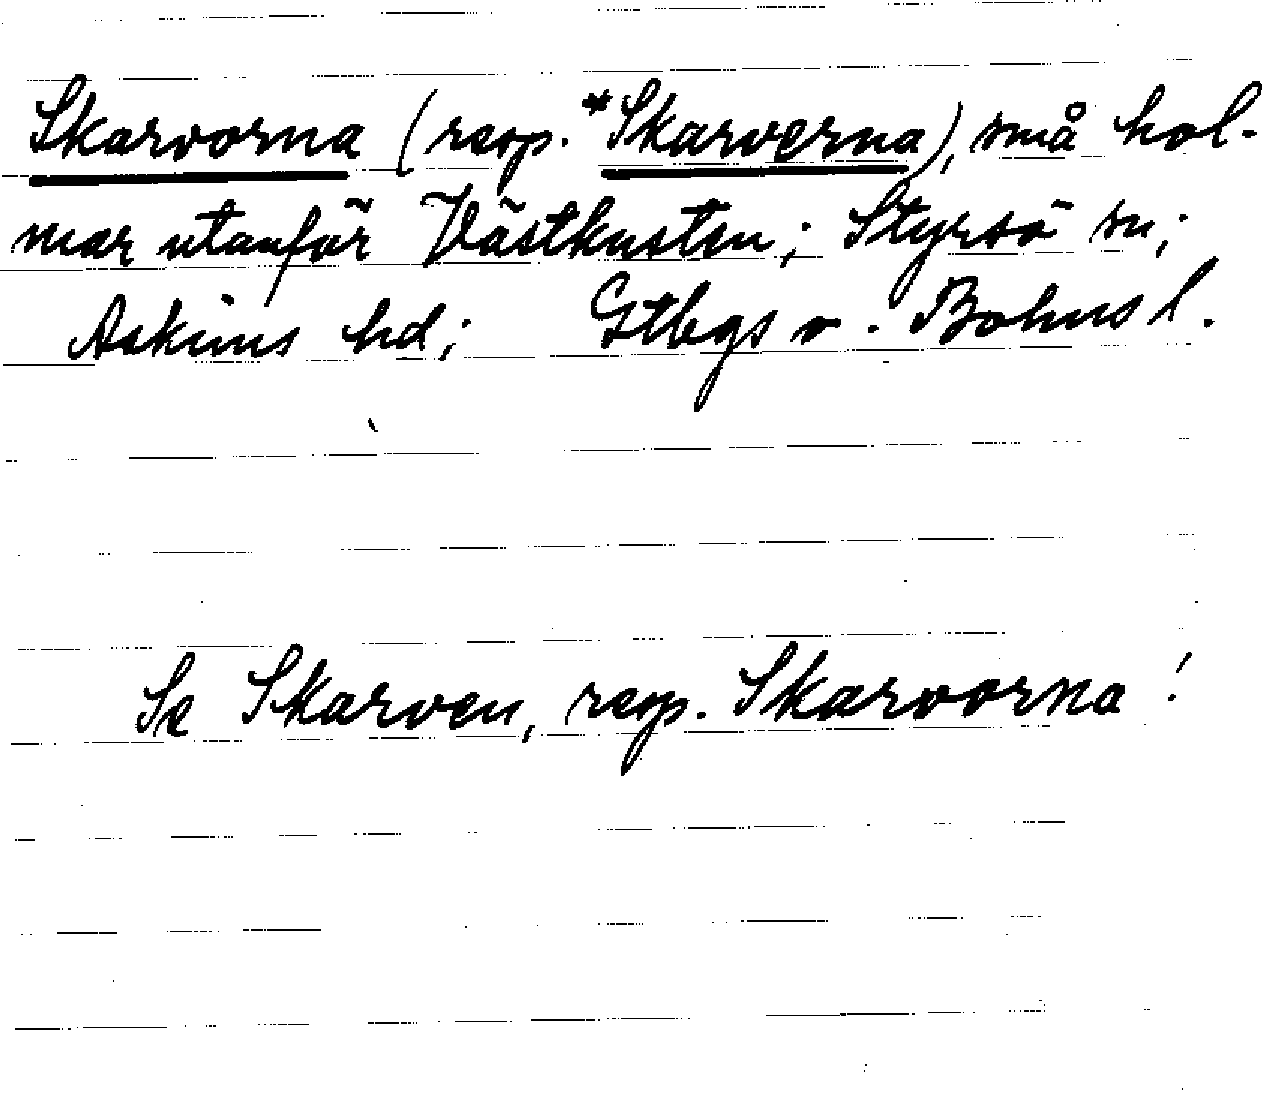 Skarvorna (resp. *Skarverna), små hol-
mar utanför Västkusten; Styrsö sn;
Askims hd; Gtbgs o. Bohus l.
Se Skarven, resp. Skarvorna!